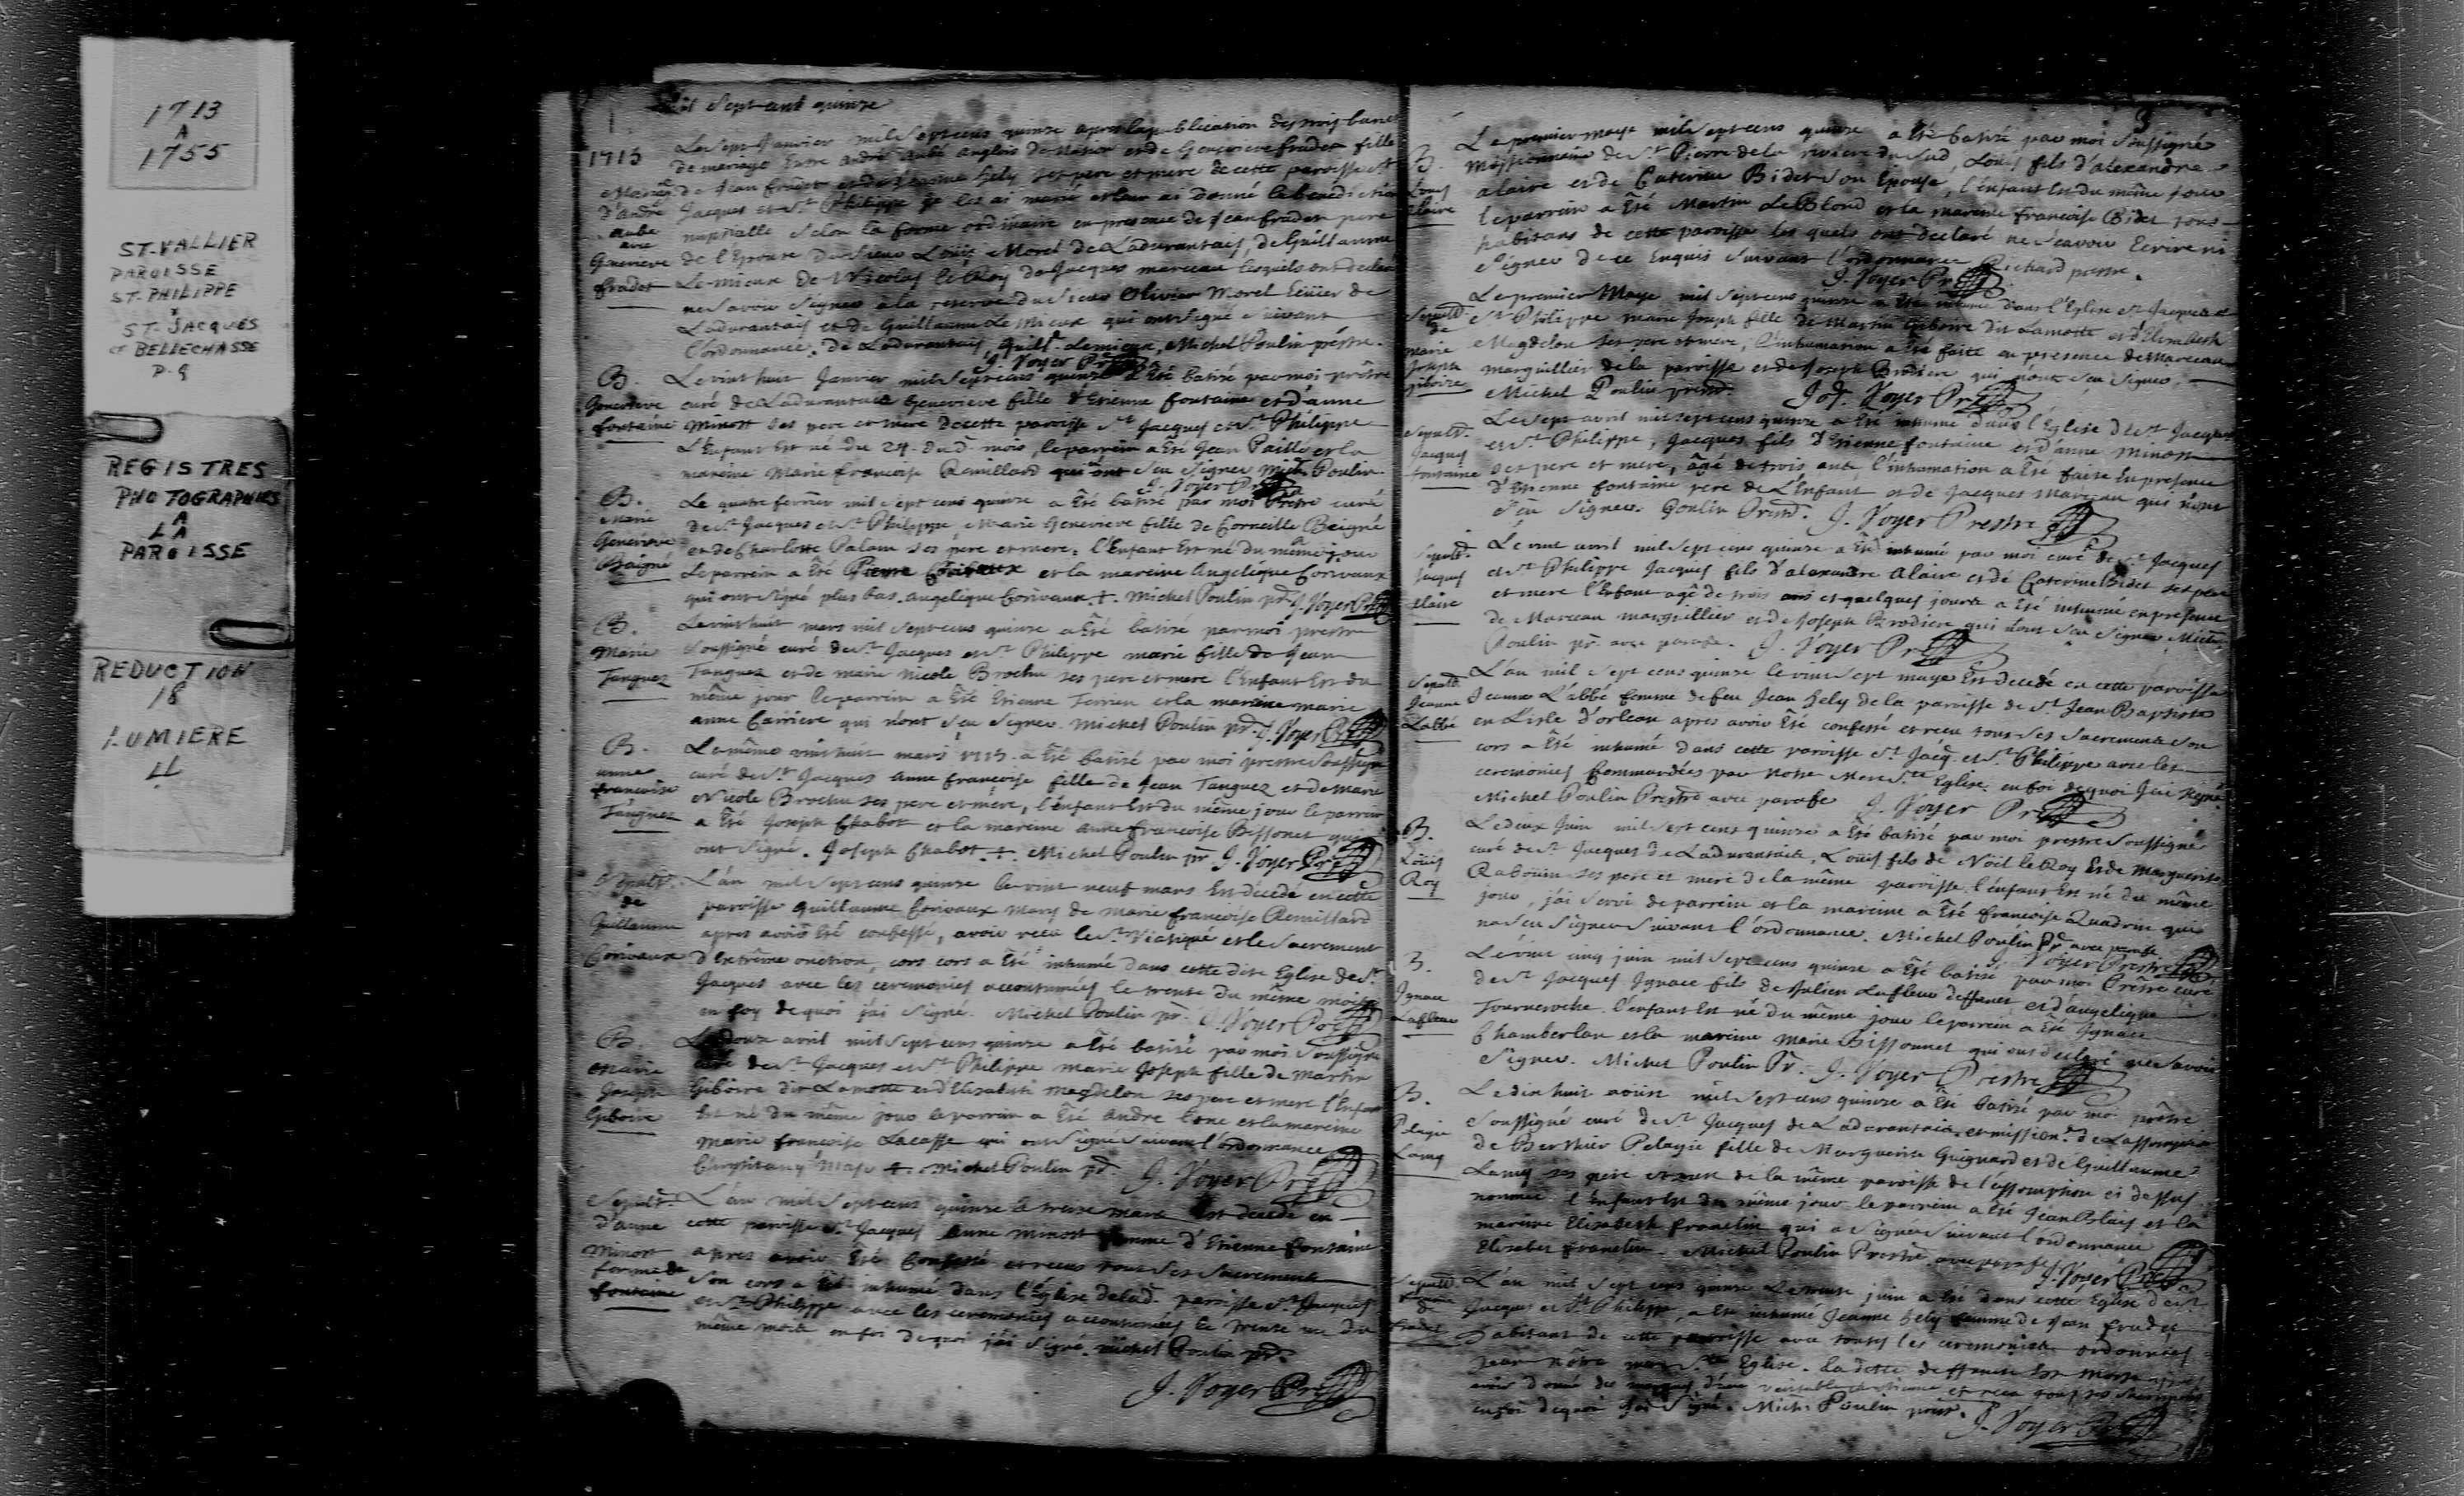 1713
A
1755
ST-VALLIER
PAROISSE
ST-PHILIPPE
&
ST-JACQUES
CT BELLECHASSE
P-Q
REGISTRES
PHOTOGRAPHIES
A
LA
PAROISSE
REDUCTION
18
LUMIERE
LL
mil Sept cent quinze
1715
Mariage
d'André
aubé
avec
Genevieve
fradet
Le sept Janvier mil sept cens quinze apres la publication des trois bans
de mariage Entre andré aubé anglois de Nation et de Genevieve fradet fille
de Jean fradet et de Jeanne hely ses pere et mere de cette paroisse St
Jacques et St Philippe je les ai marié et leur ai donné la benediction
nuptialle selon la forme ordinaire en presence de Jean fradet pere
de l'Epouse du Sieur Loüis Morel de Ladurantais, de Guillaume
Le mieux de Nicolas le Roy de Jacques marceau lesquels ont declaré
ne savoir signer a la reserve du Sieur Olivier Morel Ecüier de
Ladurantais et de Guillaume Le Mieux qui ont signé suivant
l'ordonnance. de Ladurantais, Guill. Lemieux, Michel Poulin prestre.
J. Voyer Pre
B.
Genevieve
fontaine
Le vint huit Janvier mil sept cens quinze a Eté batisé par moi prêtre
curé de Ladurantais Genevieve fille d'Etienne fontaine et d'anne
minost ses pere et mere de cette paroisse St Jacques et St Philippe
L'Enfant est né du 24. dud. mois, le parrein a Eté Jean Paillé et la
mareine Marie francoise Remillard qui n'ont seu signer Mich. Poulin.
J. Voyer Pre
B.
Marie
Genevieve
Baigné
Le quatre fevrier mil sept cens quinze a Eté batisé par moi Prêtre curé
de St Jacques et St Philippe, Marie Genevieve fille de Corneille Beigné
et de Charlotte Palam ses pere et mere: l'Enfant Est né du même jour
Le parrein a Eté Pierre Corivaux et la mareine Angelique Corivaux
qui ont signé plus bas. angelique Corivaux. +. Michel Poulin pr. J. Voyer Pre
B.
Marie
Tanguez
Le vint huit mars mil sept cens quinze a Eté batisé par moi prestre
Soussigné curé de St Jacques et St Philippe marie fille de Jean
Tanguez et de marie Nicole Brochu ses pere et mere l'Enfant Est du
même jour le parrein a Eté Etienne Terrien et la mareine marie
anne Carriere qui n'ont seu signer. Michel Poulin pr. J. Voyer Pre
B.
anne
francoise
Tanguez
Le même vint huit mars 1715. a Eté batisé par moi prestre Soussigné
curé de St Jacques anne francoise fille de Jean Tanguez et de marie
Nicole Brochu ses pere et mere, l'enfant Est du même jour le parrein
a Eté Joseph Chabot et la mareine anne francoise Bissonet qui
ont signé. Joseph Chabot. +. Michel Poulin pr J. Voyer Pre
Sepult.
de
Guillaume
Corivaux
L'an mil sept cens quinze le vint neuf mars Est decedé en cette
paroisse Guillaume Corivaux mary de Marie francoise Remillard
apres avoir Eté confessé, avoir receu le St Viatique et le sacrement
d'Extrême onction, cors cors a Eté inhumé dans cette dite Eglise de St
Jacques avec les ceremonies accoutumées le trente du même mois
en foy de quoi j'ai signé. Michel Poulin pr. J. Voyer Pre
B.
Marie
Joseph
Giboire
Le douze avril mil sept cens quinze a Eté batisé par moi Soussigné
curé de St Jacques et St Philippe marie Joseph fille de Martin
Giboire dit Lamotte et d'Elisabeth Magdelon ses pere et mere l'Enfant
Est né du même jour le parrein a Eté andré et la mareine
marie francoise Lacasse qui ont signé suivant l'ordonnance
+. Michel Poulin pr. J. Voyer Pre
Sepult.
d'anne
Minost
femme de
fontaine
L'an mil sept cens quinze le treize mars Est decedé en
cette paroisse St Jacques anne minost femme d'Etienne fontaine
apres avoir Eté Confessé et receu tous ses sacremens
son cors a Eté inhumé dans l'Eglise de lad. paroisse St Jacques
et St Philippe avec les ceremonies accoutumées le du
même mois en foi de quoi j'ai signé. michel Poulin pr.
J. Voyer Pre
3
B.
Loüis
alaire
Le premier maye mil sept cens quinze a Eté batisé par moi Soussigné
Missionnaire de St Pierre de la riviere du Sud, Loüis fils d'alexandre
alaire et de Caterine Bidet son Epouse, l'enfant Est du même jour
le parrein a Eté Martin Le Blond et la mareine francoise Bidet tous
habitans de cette paroisse les quels ont declaré ne sçavoir Ecrire ni
Signer de ce Enquis suivant l'ordonnance Richard prestre.
J. Voyer Pre
Sepult.
de
Marie
Joseph
giboire
Le premier Maye mil sept cens quinze a Eté inhumé dans l'Eglise St Jacques et
St Philippe marie Joseph fille de Martin Giboire dit Lamotte et d'Elisabeth
Magdelon ses pere et mere, l'inhumation a Eté faitte en presence de Marceau
marguillier de la paroisse et de Joseph Brodiere qui n'ont seu signer.
Michel Poulin prestr. Jos. Voyer Pre
Sepult.
Jacques
fontaine
Le sept avril mil sept cens quinze a Eté inhumé dans l'Eglise de St Jacques
et St Philippe, Jacques fils d'Etienne fontaine et d'anne minost
ses pere et mere, âgé de trois ans l'inhumation a Eté faite En presence
d'Etienne fontaine pere de l'Enfant et de Jacques Marceau qui n'ont
seu signer. Poulin Prestr. J. Voyer Prestre
Sepult.
Jacques
Elaire
Le vint avril mil sept cens quinze a Eté inhumé par moi curé de St Jacques
et St Philippe Jacques fils d'alexandre Alaire et de Caterine Bidet ses pere
et mere l'Enfant agé de trois ans et quelques jours a Eté inhumé en presence
de Marceau marguillier et de Joseph Brodiere qui n'ont seu signer. Michel
Poulin pr. avec parafe. J. Voyer Pre
Sepult.
Jeanne
Labbé
L'an mil sept cens quinze le vint sept maye Est decedé en cette paroisse
Jeanne L'abbé femme de feu Jean hely de la paroisse de St Jean Baptiste
en L'isle d'orlean apres avoir Eté confessé et receu tous ses sacremens son
cors a Eté inhumé dans cette paroisse St Jacq. et St Philippe avec les
ceremonies Commandées par notre Mere Ste Eglise, en foi de quoi J'ai signé
Michel Poulin Prestre avec parafe J. Voyer Pre
B.
Loüis
Roy
Le deux Juin mil sept cens quinze a Eté batisé par moi prestre Soussigné
curé de St Jacques de Ladurantais, Loüis fils de Noël le Roy Et de Marguerite
Rabouin ses pere et mere de la même paroisse l'enfant Est né du même
jour, j'ai servi de parrein et la mareine a Eté francoise Quadrin qui
n'a seu signer suivant l'ordonnance. Michel Poulin Pr avec parafe
J. Voyer Prestre
B.
Ignace
Lafleur
Le vint cinq juin mil sept cens quinze a Eté batisé par moi Prêtre curé
de St Jacques Ignace fils de Julien Lafleur deffunct et d'angelique
Tourneroche. l'enfant Est né du même jour le parrein a Eté Ignace
Chamberlan et la mareine Marie Bissonnet qui ont declaré ne savoir
Signer. Michel Poulin Pr. J. Voyer Prestre
B.
Pelagie
Lamy
Le dix huit aoust mil sept cens quinze a Eté batisé par moi prêtre
Soussigné curé de St Jacques de Ladurantais, et mission. de Lassomption
de Berthier Pelagie fille de Marguerite Guignard et de Guillaume
Lamy ses pere et mere de la même paroisse de l'assomption ci dessus
nommée l'Enfant Est du même jour le parrein a Eté Jean Blais et la
mareine Elisabeth francelin qui a signé suivant l'ordonnance
Elisabet francelin. Michel Poulin Prestre avec parafe
J. Voyer Pre
Sepult.
de
fradet
L'an mil sept cens quinze Le juin a Eté dans cette Eglise de St
Jacques et St Philippe, a Eté inhumé Jeanne hely femme de Jean fradet
habitant de cette paroisse avec toutes les ceremonies ordonnées
par nôtre mere Ste Eglise. La dette deffuncte Est morte apres
avoir donné des marques d'une veritable et receu tous ses sacremens
en foi de quoi j'ai signé. Mich. Poulin prestr. J. Voyer Pre